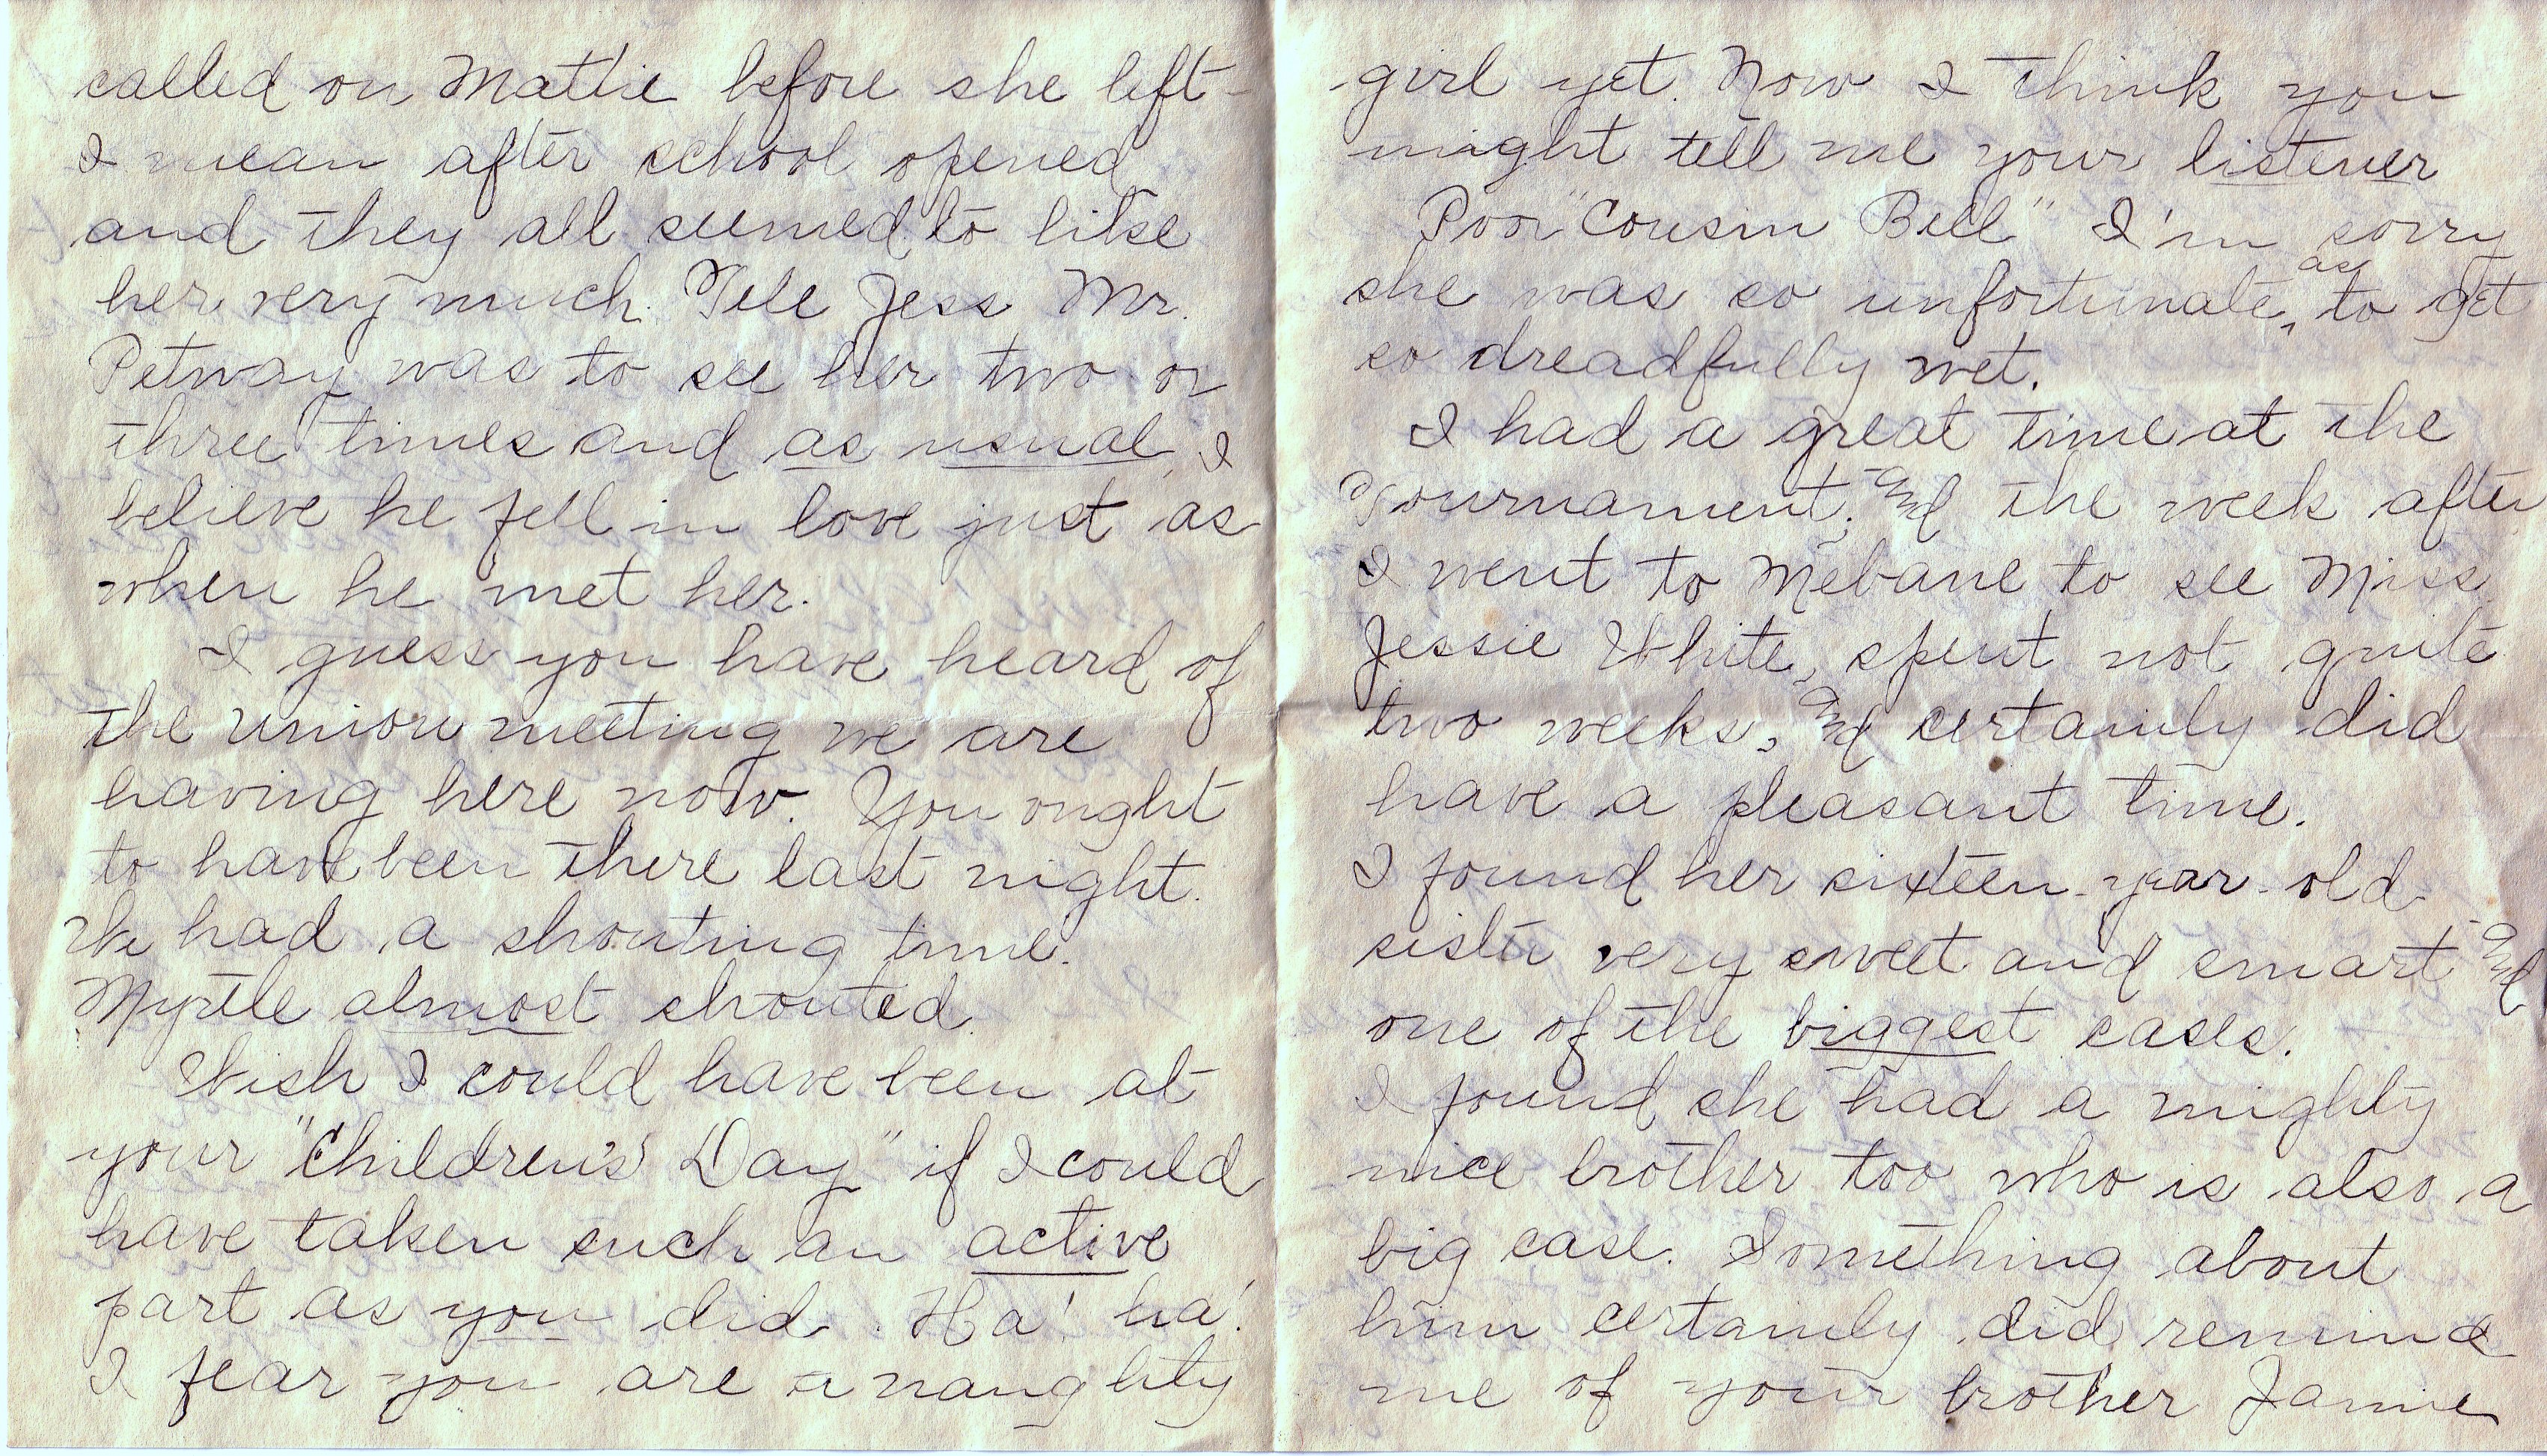 called on Mattie before she left -
I mean after school opened
and they all seemed to like
her very much. Tell Jess Mr.
Petway was to see her two or
three times and as usual, I
believe he fell in love just as
when he met her.
I guess you have heard of
the union meeting we are
having here now. You ought
to have been there last night.
We had a shouting time.
Myrtle almost shouted.
Wish I could have been at
your "Children's Day" if I could
have taken such an active
part as you did. Ha! ha!
I fear you are a naughty
girl yet. Now I think you
might tell me your listener
Poor "Cousin Bell" I'm sorry
she was so unfortunate, as to get
so dreadfully wet.
I had a great time at the
Tournament; and the week after
I went to Mebane to see Miss
Jessie White, spent not quite
two weeks, and certainly did
have a pleasant time.
I found her sixteen-year-old
sister very sweet and smart and
one of the biggest cases.
I found she had a mighty
nice brother too who is also a
big case. Something about
him certainly did remind
me of your brother Jamie